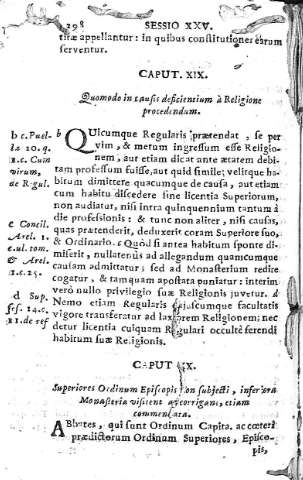 298 SESSIO XXV.
titæ appellantur: in quibus constitutiones earum
serventur.
CAPUT. XIX.
Quomodo in causis deficientium à Religione
procedendum.
b c. Puel-
la 20. q.
1. c. Cum
virum,
de Regul.
b QUicumque Regularis prætendat, se per
vim, & metum ingressum esse Religio-
nem, aut etiam dicat ante ætatem debi-
tam professum fuisse, aut quid simile; velitque ha-
bitum dimittere quacumque de causa, aut etiam
cum habitu discedere sine licentia Superiorum,
non audiatur, nisi intra quinquennium tantum à
die professionis: & tunc non aliter, nisi causas,
quas prætenderit, deduxerit coram Superiore suo,
& Ordinario. c Quòd si antea habitum sponte di-
miserit, nullatenus ad allegandum quamcumque
causam admittatur; sed ad Monasterium redire
cogatur, & tamquam apostata puniatur: interim
verò nullo privilegio suæ Religionis juvetur. d
Nemo etiam Regularis cujuscumque facultatis
vigore transferatur ad laxiorem Religionem; nec
detur licentia cuiquam Regulari occultè ferendi
habitum suæ Religionis.
c Concil.
Arel. 1.
c. ul. tom.
& Arel.
1. c. 25.
d Sup.
ses. 14. c.
11. de ref
CAPUT XX.
Superiores Ordinum Episcopis non subjecti, inferiora
Monasteria visitent ac corrigant, etiam
commendata.
ABbates, qui sunt Ordinum Capita, ac cæteri
prædictorum Ordinum Superiores, Episco-
pis,